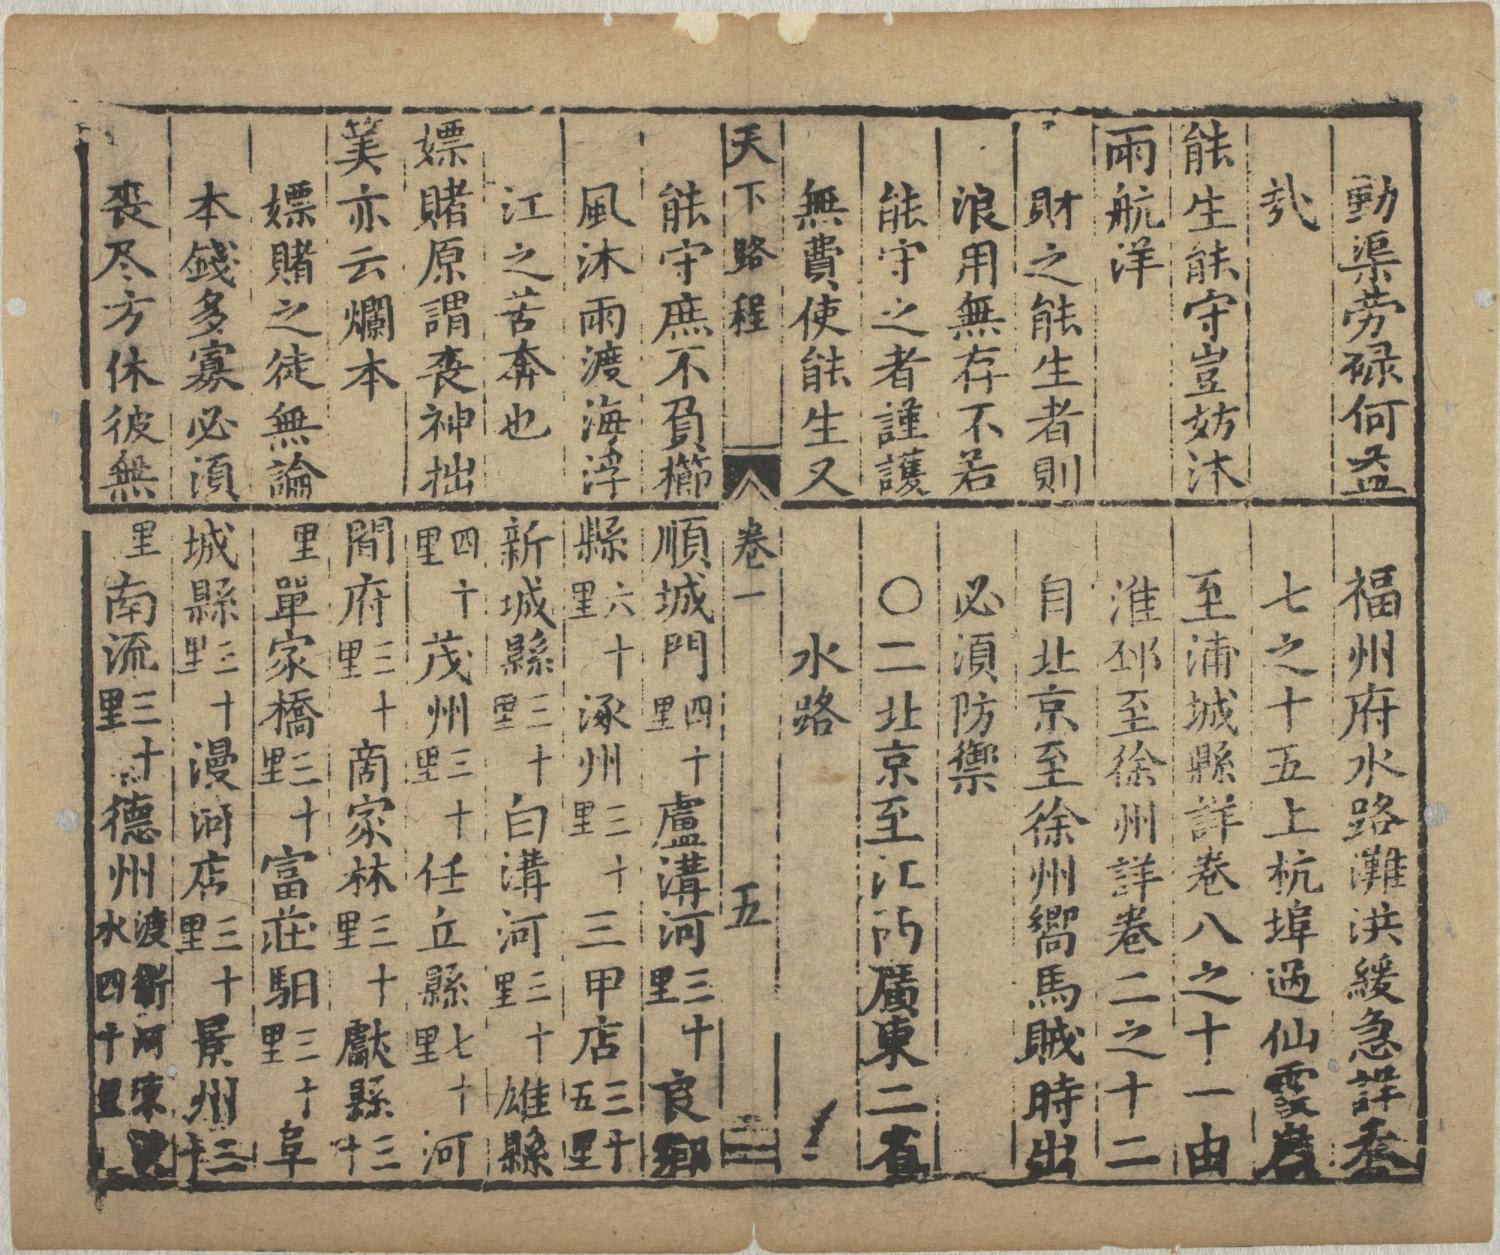 動渠勞祿何益
㢤
能生能守豈妨沐
雨航洋
財之能生者則
浪用無存不若
能守之者謹護
無費使能生又
天下路程
能守庶不負櫛
風沐雨渡海浮
江之苦奔也
嫖賭原謂喪神拙
筭亦云爛本
嫖賭之徒無論
本錢多寡必須
喪尽方休彼無
福州府水路灘洪緩急詳卷
七之十五上杭埠過仙霞嶺
至浦城縣詳卷八之十一由
淮邳至徐州詳卷二之十二
自北京至徐州嚮馬賊時出
必須防禦
〇二北京至江西廣東二省
水路
卷一 五
順城門四十里盧溝河三十里良鄉
縣六十里涿州三十里三甲店三十五里
新城縣三十里白溝河三十里雄縣
四十里茂州三十里任丘縣七十里河
間府三十里商家林三十里獻縣三十
里單家橋三十里富莊馹三十里阜
城縣三十里漫河店三十里景州三十
里南流三十里德州渡衛河水四十里